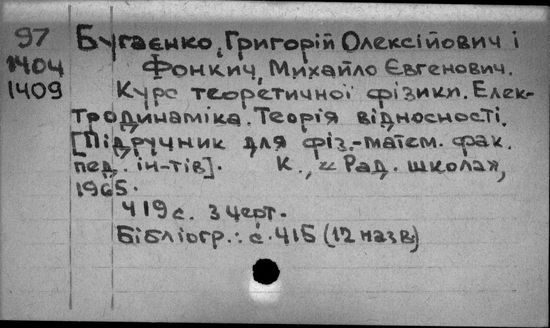 97 Бугаєнко, Григорій Олексійович і
1404 Фонкич, Михайло Євгенович.
1409 Курс теоретичної фізики. Елек-
тродинаміка. Теорія відносності.
[Підручник для фіз.-матем. фак.
пед. ін-тів]. К., "Рад. школа",
1965.
419 с. з черт.
Бібліогр.: с. 415 (12 назв)